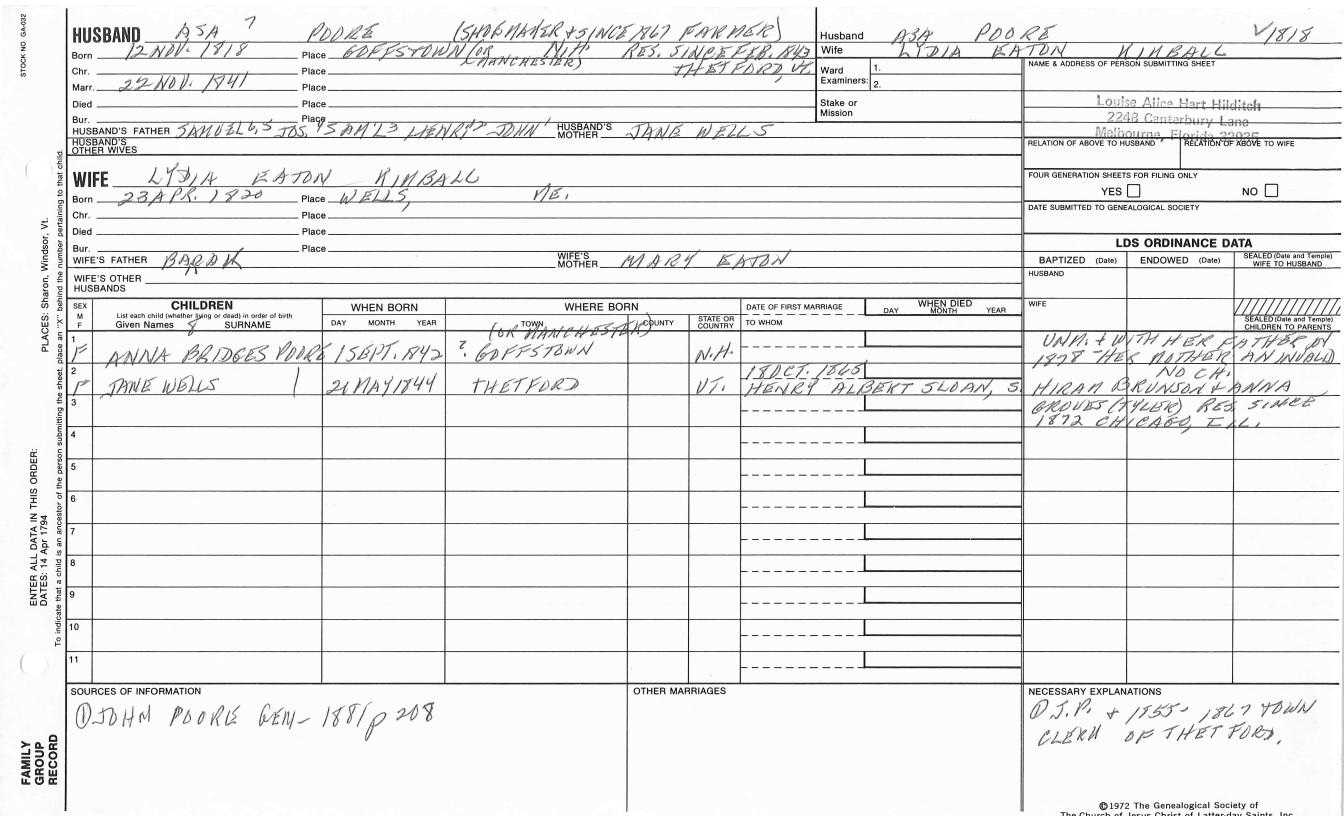 STOCK NO. GA-032
HUSBAND ASA 7 POORE (SHOEMAKER + SINCE 1867 FARMER)
Born 12 NOV. 1818 Place GOFFSTOWN (OR MANCHESTER) N.H. RES. SINCE FEB. 1843 THETFORD, VT.
Chr. Place
Marr. 22 NOV. 1841 Place
Died Place
Bur. Place
HUSBAND'S FATHER SAMUEL 6, 5 JOS. 4 SAM'L 3 HENRY 2 JOHN 1 HUSBAND'S MOTHER JANE WELLS
HUSBAND'S OTHER WIVES
Husband ASA POORE √1818
Wife LYDIA EATON KIMBALL
Ward Examiners: 1. 2.
Stake or Mission
NAME & ADDRESS OF PERSON SUBMITTING SHEET
Louise Alice Hart Hilditch
2248 Canterbury Lane
Melbourne, Florida 32935
RELATION OF ABOVE TO HUSBAND RELATION OF ABOVE TO WIFE
FOUR GENERATION SHEETS FOR FILING ONLY
YES NO
DATE SUBMITTED TO GENEALOGICAL SOCIETY
WIFE LYDIA EATON KIMBALL
Born 23 APR. 1820 Place WELLS, ME.
Chr. Place
Died Place
Bur. Place
WIFE'S FATHER BARAK WIFE'S MOTHER MARY EATON
WIFE'S OTHER HUSBANDS
LDS ORDINANCE DATA
BAPTIZED (Date) ENDOWED (Date) SEALED (Date and Temple) WIFE TO HUSBAND
HUSBAND
WIFE
SEALED (Date and Temple) CHILDREN TO PARENTS
SEX M F
CHILDREN
List each child (whether living or dead) in order of birth
Given Names 8 SURNAME
WHEN BORN
DAY MONTH YEAR
WHERE BORN
TOWN COUNTY STATE OR COUNTRY
(OR MANCHESTER)
DATE OF FIRST MARRIAGE
TO WHOM
WHEN DIED
DAY MONTH YEAR
1 F ANNA BRIDGES POORE 1 SEPT. 1842 ? GOFFSTOWN N.H. UNM. + WITH HER FATHER IN
1878 - HER MOTHER AN INVALID
2 18 OCT. 1865 NO CH.
F JANE WELLS 1 21 MAY 1844 THETFORD VT. HENRY ALBERT SLOAN, S. HIRAM BRUNSON + ANNA
3 GROVES (TYLER) RES. SINCE
1872 CHICAGO, ILL.
4
5
6
7
8
9
10
11
SOURCES OF INFORMATION
① JOHN POORE GEN- 1881 p 208
OTHER MARRIAGES
NECESSARY EXPLANATIONS
① J.P. + 1855 - 1867 TOWN
CLERK OF THETFORD.
©1972 The Genealogical Society of
The Church of Jesus Christ of Latter-day Saints, Inc.
FAMILY GROUP RECORD
ENTER ALL DATA IN THIS ORDER:
DATES: 14 Apr 1794
PLACES: Sharon, Windsor, Vt.
To indicate that a child is an ancestor of the person submitting the sheet, place an "X" behind the number pertaining to that child.